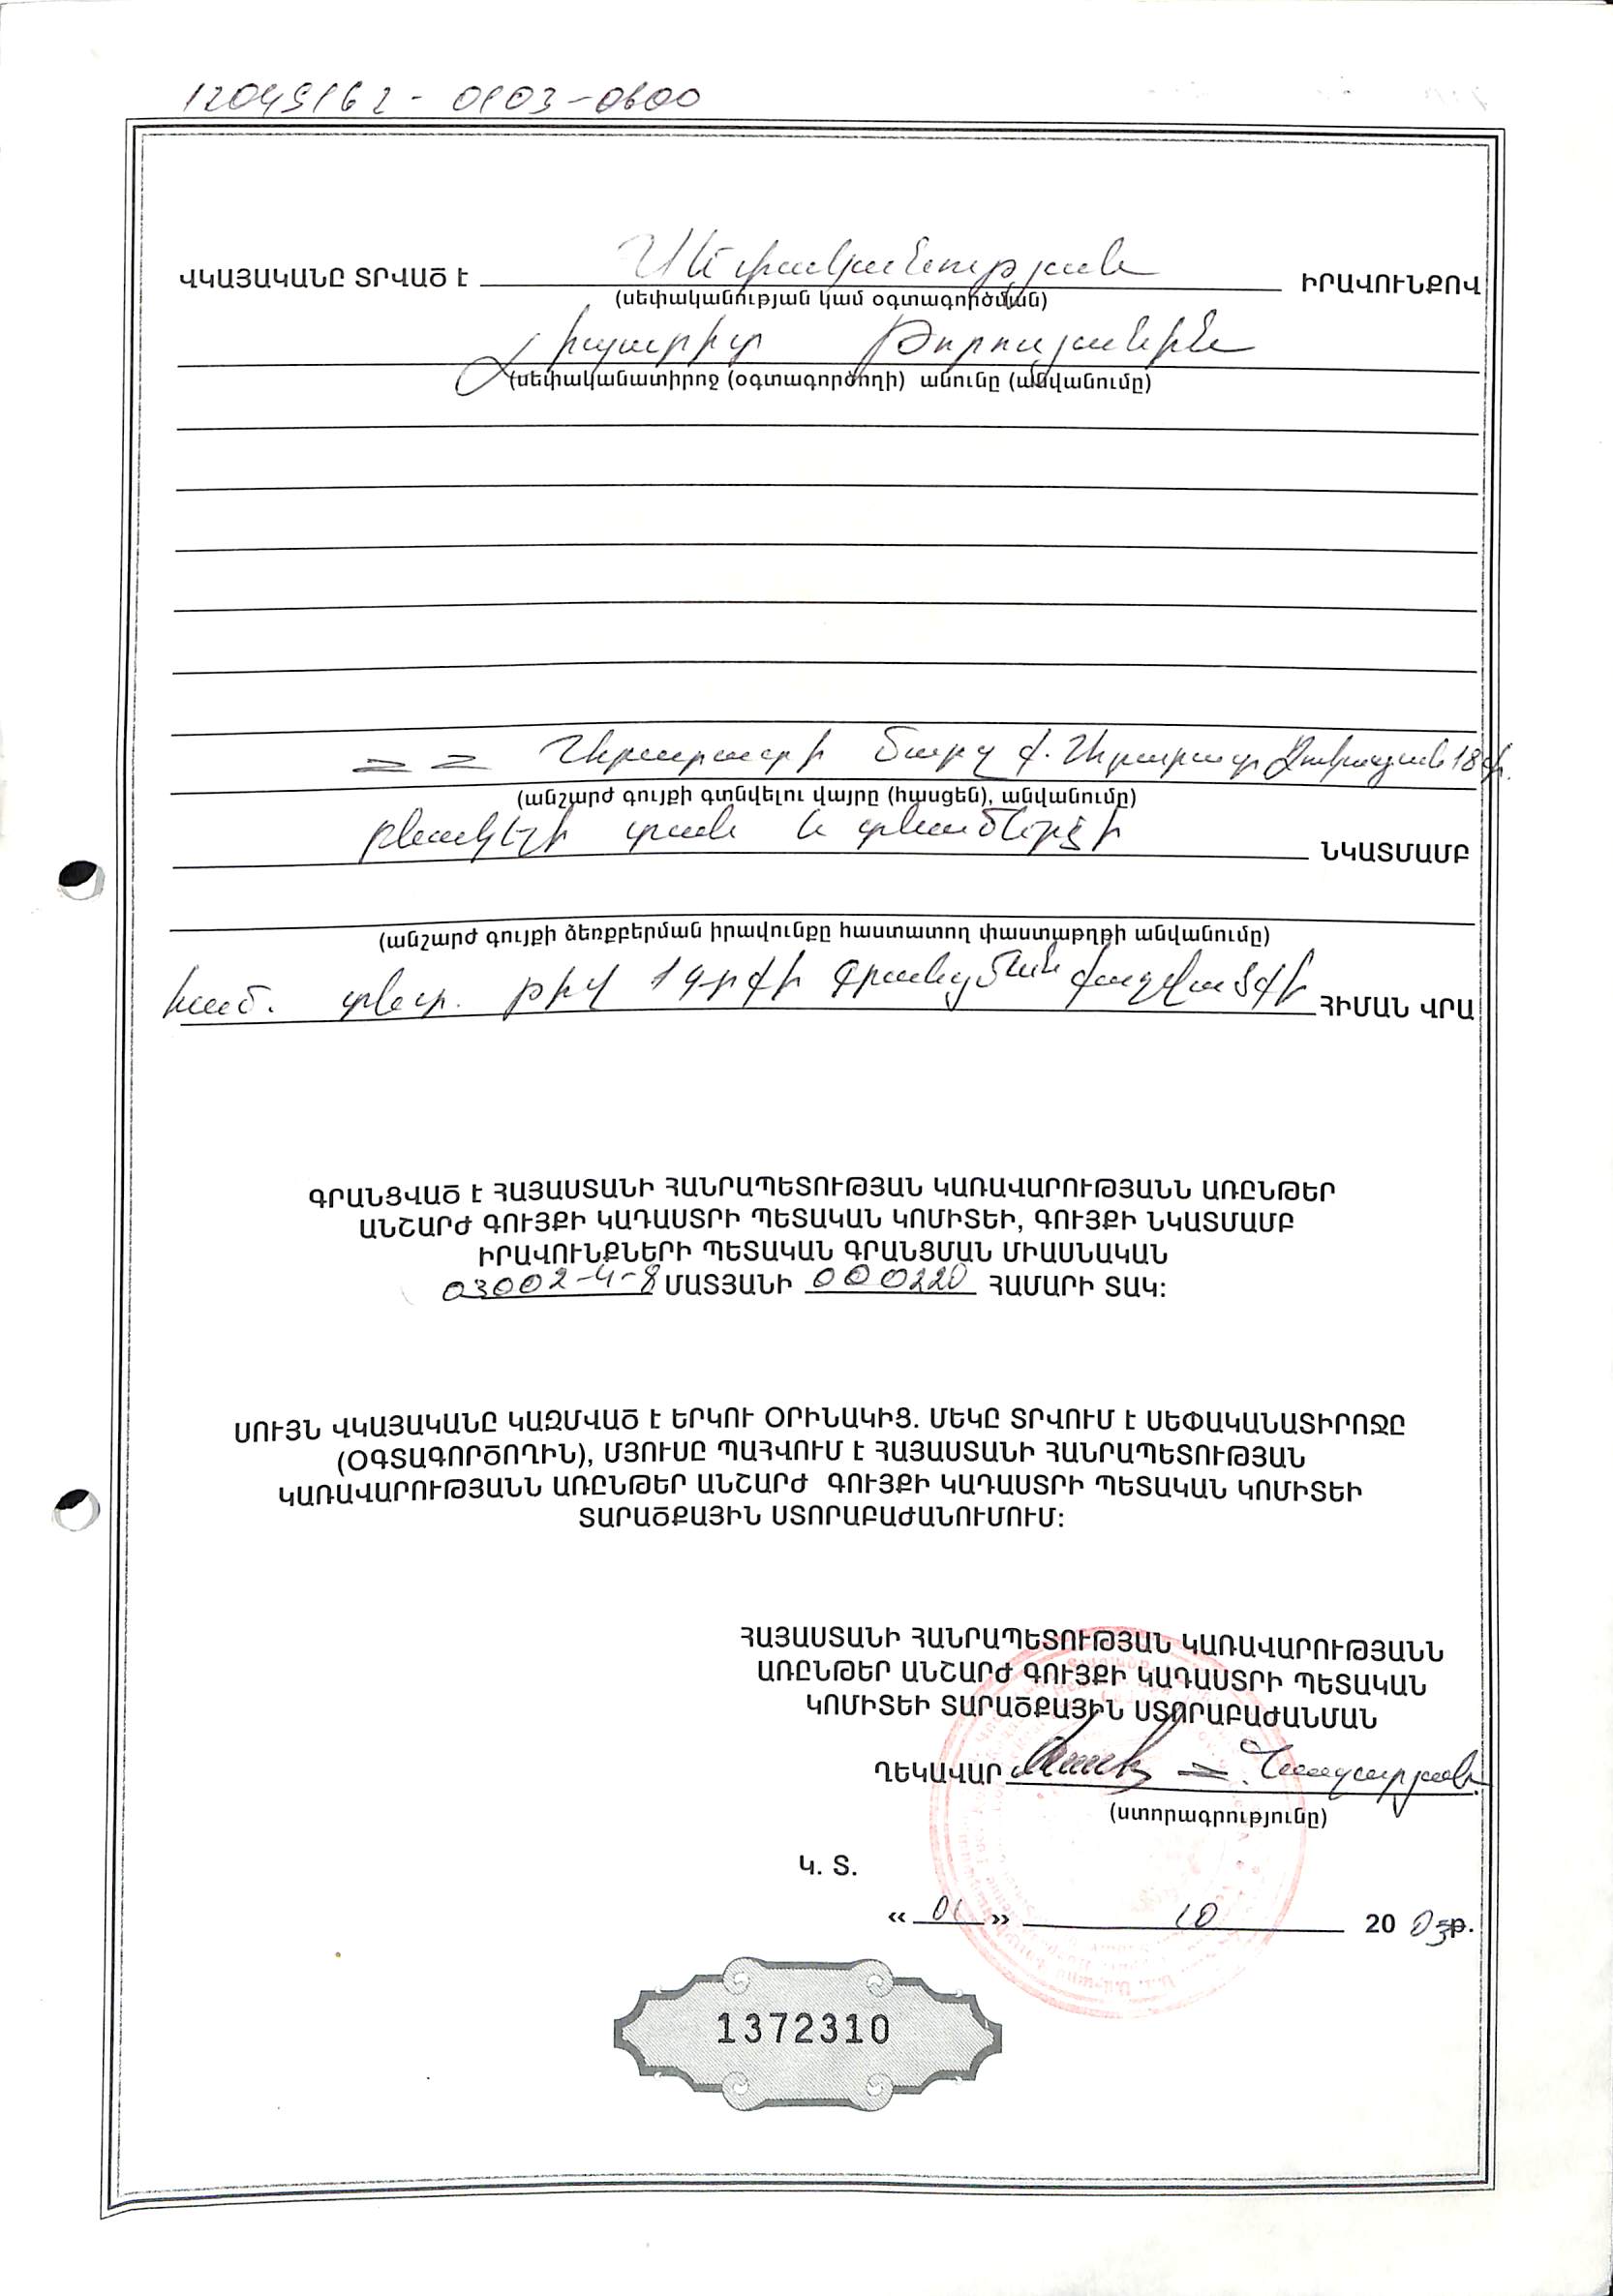 12045162 - 0103-0600
ՎԿԱՅԱԿԱՆԸ ՏՐՎԱԾ է Սեփականության ԻՐԱՎՈՒՆՔՈՎ
(սեփականության կամ օգտագործման)
Լիպարիտ Թորոսյանին
(սեփականատիրոջ (օգտագործողի) անունը (անվանումը)
ՀՀ Արարատի մարզ ք. Արարատ 18
(անշարժ գույքի գտնվելու վայրը (հասցեն), անվանումը)
բնակելի տան և տնամերձի ՆԿԱՏՄԱՄԲ
(անշարժ գույքի ձեռքբերման իրավունքը հաստատող փաստաթղթի անվանումը)
համ. տնտ. թիվ 1 գրքի գրանցման քաղվածքի ՀԻՄԱՆ ՎՐԱ
ԳՐԱՆՑՎԱԾ է ՀԱՅԱՍՏԱՆԻ ՀԱՆՐԱՊԵՏՈՒԹՅԱՆ ԿԱՌԱՎԱՐՈՒԹՅԱՆՆ ԱՌԸՆԹԵՐ
ԱՆՇԱՐԺ ԳՈՒՅՔԻ ԿԱԴԱՍՏՐԻ ՊԵՏԱԿԱՆ ԿՈՄԻՏԵԻ, ԳՈՒՅՔԻ ՆԿԱՏՄԱՄԲ
ԻՐԱՎՈՒՆՔՆԵՐԻ ՊԵՏԱԿԱՆ ԳՐԱՆՑՄԱՆ ՄԻԱՍՆԱԿԱՆ
03002-4-8 ՄԱՏՅԱՆԻ 000220 ՀԱՄԱՐԻ ՏԱԿ:
ՍՈՒՅՆ ՎԿԱՅԱԿԱՆԸ ԿԱԶՄՎԱԾ է ԵՐԿՈՒ ՕՐԻՆԱԿԻՑ. ՄԵԿԸ ՏՐՎՈՒՄ է ՍԵՓԱԿԱՆԱՏԻՐՈՋԸ
(ՕԳՏԱԳՈՐԾՈՂԻՆ), ՄՅՈՒՍԸ ՊԱՀՎՈՒՄ է ՀԱՅԱՍՏԱՆԻ ՀԱՆՐԱՊԵՏՈՒԹՅԱՆ
ԿԱՌԱՎԱՐՈՒԹՅԱՆՆ ԱՌԸՆԹԵՐ ԱՆՇԱՐԺ ԳՈՒՅՔԻ ԿԱԴԱՍՏՐԻ ՊԵՏԱԿԱՆ ԿՈՄԻՏԵԻ
ՏԱՐԱԾՔԱՅԻՆ ՍՏՈՐԱԲԱԺԱՆՈՒՄՈՒՄ:
ՀԱՅԱՍՏԱՆԻ ՀԱՆՐԱՊԵՏՈՒԹՅԱՆ ԿԱՌԱՎԱՐՈՒԹՅԱՆՆ
ԱՌԸՆԹԵՐ ԱՆՇԱՐԺ ԳՈՒՅՔԻ ԿԱԴԱՍՏՐԻ ՊԵՏԱԿԱՆ
ԿՈՄԻՏԵԻ ՏԱՐԱԾՔԱՅԻՆ ՍՏՈՐԱԲԱԺԱՆՄԱՆ
ՂԵԿԱՎԱՐ Հ. Նազարյան
(ստորագրությունը)
Կ. Տ.
« 01 » 10 20 03թ.
1372310